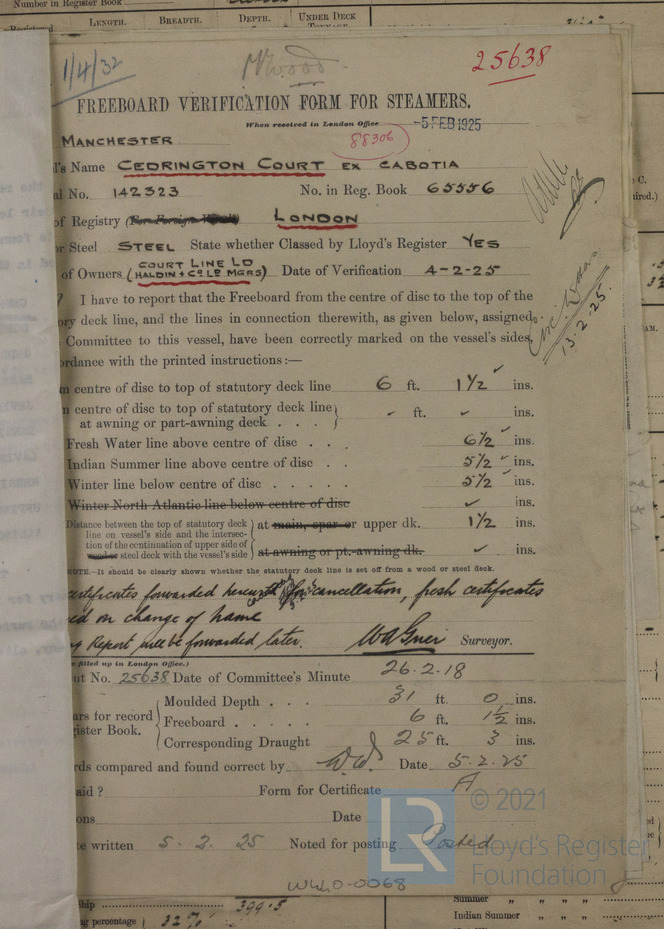 Number in Register Book
Registered LENGTH. BREADTH. DEPTH. UNDER DECK TONNAGE
1/4/32
25638
FREEBOARD VERIFICATION FORM FOR STEAMERS.
When received in London Office -5 FEB 1925
88306
MANCHESTER
's Name CEDRINGTON COURT EX CABOTIA
al No. 142323 No. in Reg. Book 65556
of Registry LONDON
or Steel STEEL State whether Classed by Lloyd's Register YES
of Owners (COURT LINE LD HALDIN & CO. LD MGRS) Date of Verification 4-2-25
I have to report that the Freeboard from the centre of disc to the top of the
ory deck line, and the lines in connection therewith, as given below, assigned
Committee to this vessel, have been correctly marked on the vessel's sides,
ordance with the printed instructions :—
13.2.25.
m centre of disc to top of statutory deck line 6 ft. 1 1/2 ins.
n centre of disc to top of statutory deck line
at awning or part-awning deck . . . ft. ins.
Fresh Water line above centre of disc . . . 6 1/2 ins.
Indian Summer line above centre of disc . . 5 1/2 ins.
Winter line below centre of disc . . . . . 5 1/2 ins.
Winter North Atlantic line below centre of disc ins.
Distance between the top of statutory deck
line on vessel's side and the intersec-
tion of the continuation of upper side of
wood or steel deck with the vessel's side
at main, spar or upper dk. 1 1/2 ins.
at awning or pt.-awning dk. ins.
NOTE.—It should be clearly shown whether the statutory deck line is set off from a wood or steel deck.
ertificates forwarded herewith for cancellation, fresh certificates
ed on change of name
g Report will be forwarded later. Surveyor.
e filled up in London Office.)
nt No. 25638 Date of Committee's Minute 26.2.18
ars for record
gister Book.
Moulded Depth . . . 31 ft. 0 ins.
Freeboard . . . . . 6 ft. 1 1/2 ins.
Corresponding Draught 25 ft. 3 ins.
rds compared and found correct by Date 5.2.25
aid ? Form for Certificate A
ons Date
te written 5.2.25 Noted for posting Posted
© 2021
LR
Lloyd's Register
Foundation
WWLO-0068
ship 399.5
ng percentage 32%
Summer „ „ „ „
Indian Summer „ „ „ „